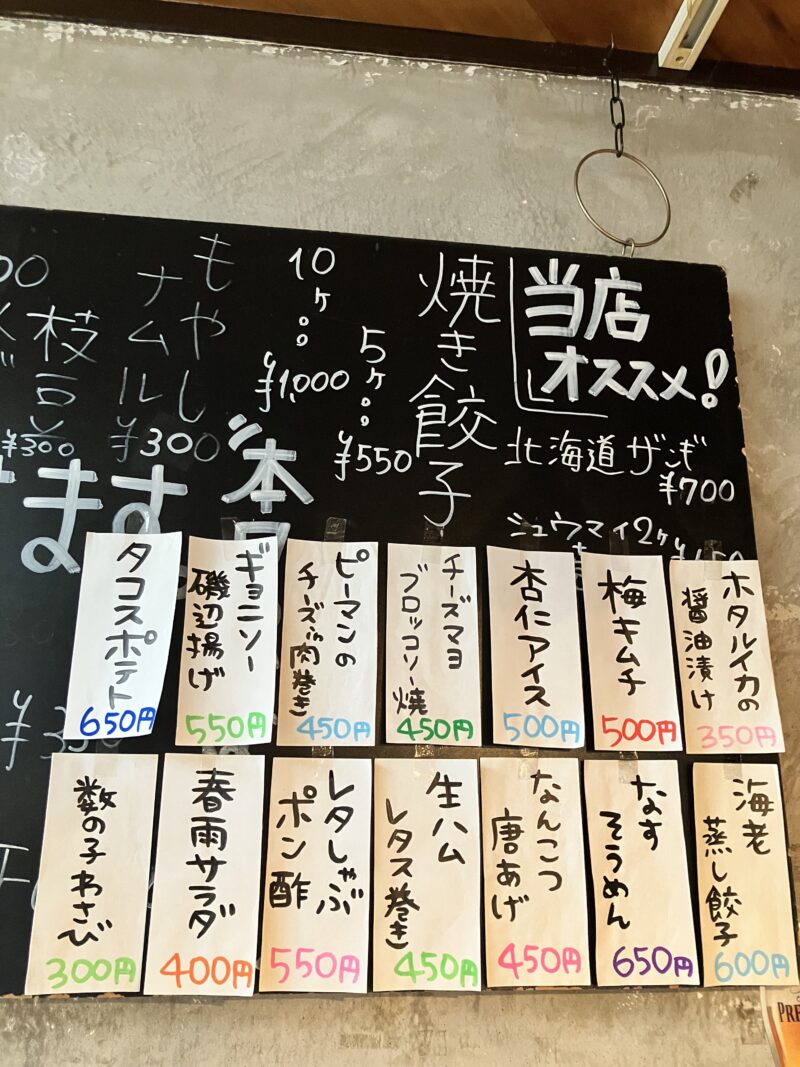 当店
オススメ!
北海道ザンギ
¥700
シュウマイ2ヶ
焼き餃子
5ヶ
¥550
10ヶ
¥1,000
もやし
ナムル
¥300
枝豆
¥300
ます
本
ホタルイカの
醤油漬け
350円
梅キムチ
500円
杏仁アイス
500円
チーズマヨ
ブロッコリー焼
450円
ピーマンの
チーズin肉巻き
450円
ギョニソー
磯辺揚げ
550円
タコスポテト
650円
海老
蒸し餃子
600円
なす
そうめん
650円
なんこつ
唐あげ
450円
生ハム
レタス巻き
450円
レタしゃぶ
ポン酢
550円
春雨サラダ
400円
数の子わさび
300円